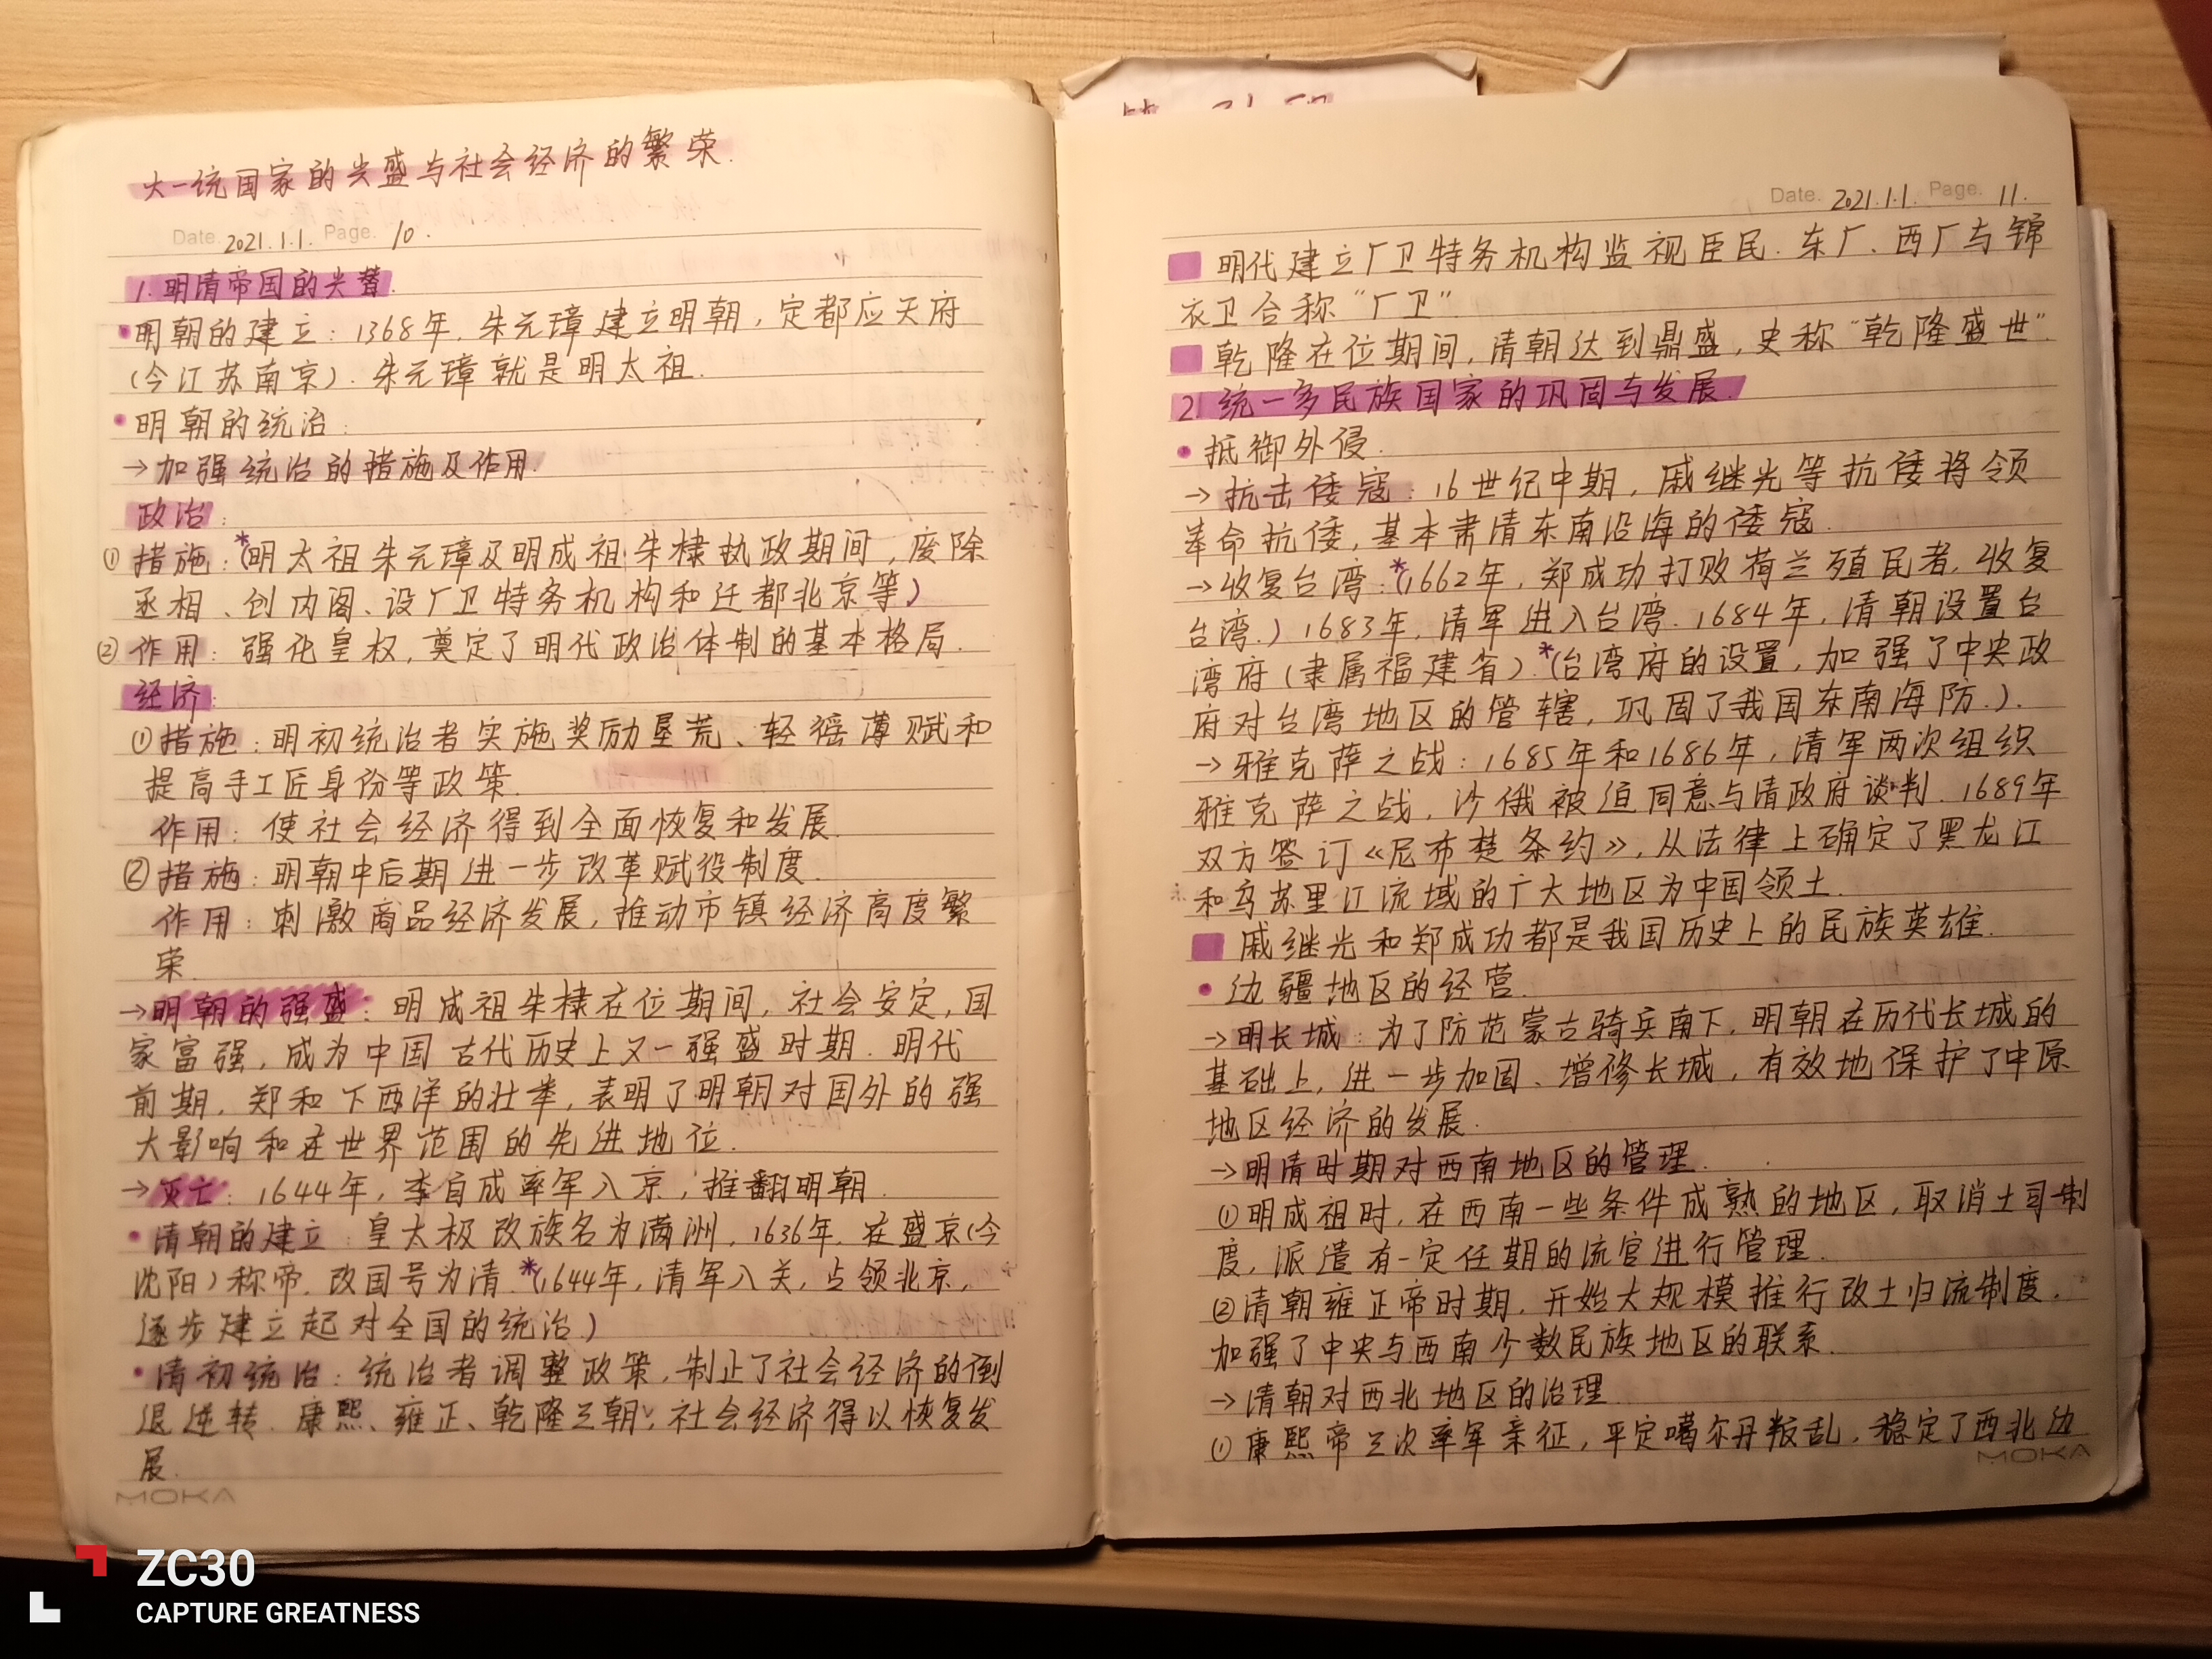 大一统国家的兴盛与社会经济的繁荣.
Date. 2021.1.1. Page. 10.
1.明清帝国的兴替.
•明朝的建立: 1368年, 朱元璋建立明朝, 定都应天府
(今江苏南京). 朱元璋就是明太祖.
•明朝的统治:
→加强统治的措施及作用.
政治:
①措施:*(明太祖朱元璋及明成祖朱棣执政期间, 废除
丞相、创内阁、设厂卫特务机构和迁都北京等)
②作用: 强化皇权, 奠定了明代政治体制的基本格局.
经济:
①措施: 明初统治者实施奖励垦荒、轻徭薄赋和
提高手工匠身份等政策.
作用: 使社会经济得到全面恢复和发展.
②措施: 明朝中后期进一步改革赋役制度.
作用: 刺激商品经济发展, 推动市镇经济高度繁
荣.
→明朝的强盛: 明成祖朱棣在位期间, 社会安定, 国
家富强, 成为中国古代历史上又一强盛时期. 明代
前期, 郑和下西洋的壮举, 表明了明朝对国外的强
大影响和在世界范围的先进地位.
→灭亡: 1644年, 李自成率军入京, 推翻明朝.
•清朝的建立: 皇太极改族名为满洲, 1636年, 在盛京(今
沈阳)称帝, 改国号为清.*(1644年, 清军入关, 占领北京,
逐步建立起对全国的统治)
•清初统治: 统治者调整政策, 制止了社会经济的倒
退逆转. 康熙、雍正、乾隆三朝, 社会经济得以恢复发
展.
MOKA
Date. 2021.1.1. Page. 11.
明代建立厂卫特务机构监视臣民. 东厂、西厂与锦
衣卫合称“厂卫”
乾隆在位期间, 清朝达到鼎盛, 史称“乾隆盛世”.
2.统一多民族国家的巩固与发展.
•抵御外侵.
→抗击倭寇: 16世纪中期, 戚继光等抗倭将领
革命抗倭, 基本肃清东南沿海的倭寇.
→收复台湾:*(1662年, 郑成功打败荷兰殖民者, 收复
台湾.) 1683年, 清军进入台湾. 1684年, 清朝设置台
湾府(隶属福建省).*(台湾府的设置, 加强了中央政
府对台湾地区的管辖, 巩固了我国东南海防.).
→雅克萨之战: 1685年和1686年, 清军两次组织
雅克萨之战, 沙俄被迫同意与清政府谈判. 1689年
双方签订《尼布楚条约》, 从法律上确定了黑龙江
和乌苏里江流域的广大地区为中国领土.
戚继光和郑成功都是我国历史上的民族英雄.
•边疆地区的经营.
→明长城: 为了防范蒙古骑兵南下, 明朝在历代长城的
基础上, 进一步加固、增修长城, 有效地保护了中原
地区经济的发展.
→明清时期对西南地区的管理.
①明成祖时, 在西南一些条件成熟的地区, 取消土司制
度, 派遣有一定任期的流官进行管理.
②清朝雍正帝时期, 开始大规模推行改土归流制度,
加强了中央与西南少数民族地区的联系.
→清朝对西北地区的治理.
①康熙帝三次率军亲征, 平定噶尔丹叛乱, 稳定了西北边
MOKA
ZC30
CAPTURE GREATNESS